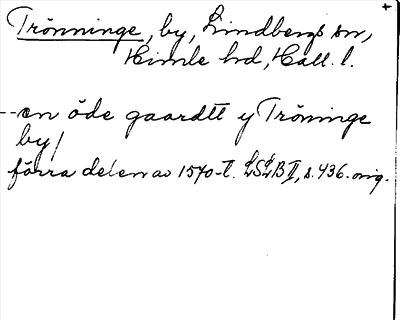 Trönninge, by, Lindbergs sn,
Himle hd, Hall. l.
-- en öde gaardtt y Tröninge
by/
förra delen av 1540-t. LSLB II, s. 436. orig.